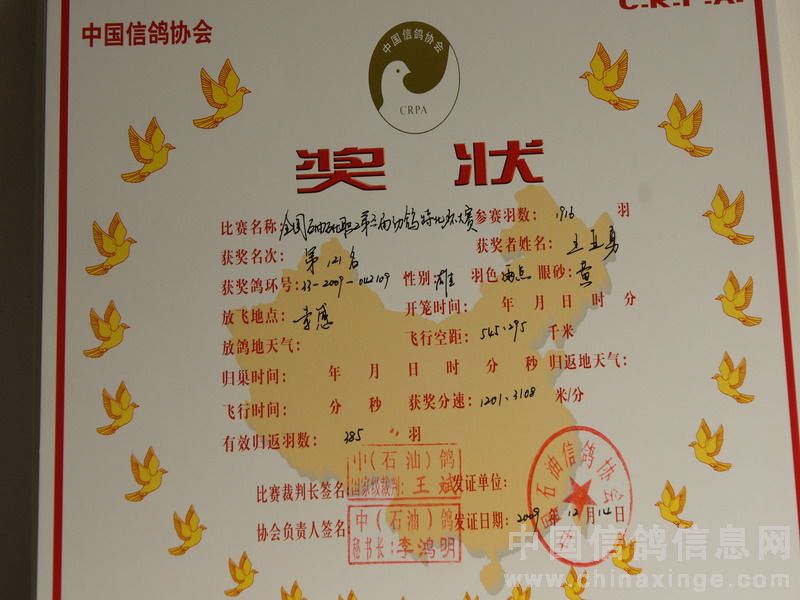 中国信鸽协会
C.R.P.A.
中国信鸽协会
CRPA
奖 状
比赛名称: 全国石油石化职工第六届幼鸽特比环大赛 参赛羽数: 1916 羽
获奖名次: 第121名 获奖者姓名: 王亚勇
获奖鸽环号: 23-2009-042109 性别: 雄 羽色 雨点 眼砂: 黄
放飞地点: 孝感 开笼时间: 年 月 日 时 分
放鸽地天气: 飞行空距: 545.295 千米
归巢时间: 年 月 日 时 分 秒 归返地天气:
飞行时间: 分 秒 获奖分速: 1201.3108 米/分
有效归返羽数: 385 羽
中(石油)鸽
比赛裁判长签名: 国家级裁判: 王斌 发证单位:
中(石油)鸽
协会负责人签名: 秘书长: 李鸿明 发证日期: 2009 年 12 月 14 日
石油信鸽协会
中国信鸽信息网
www.chinaxinge.com